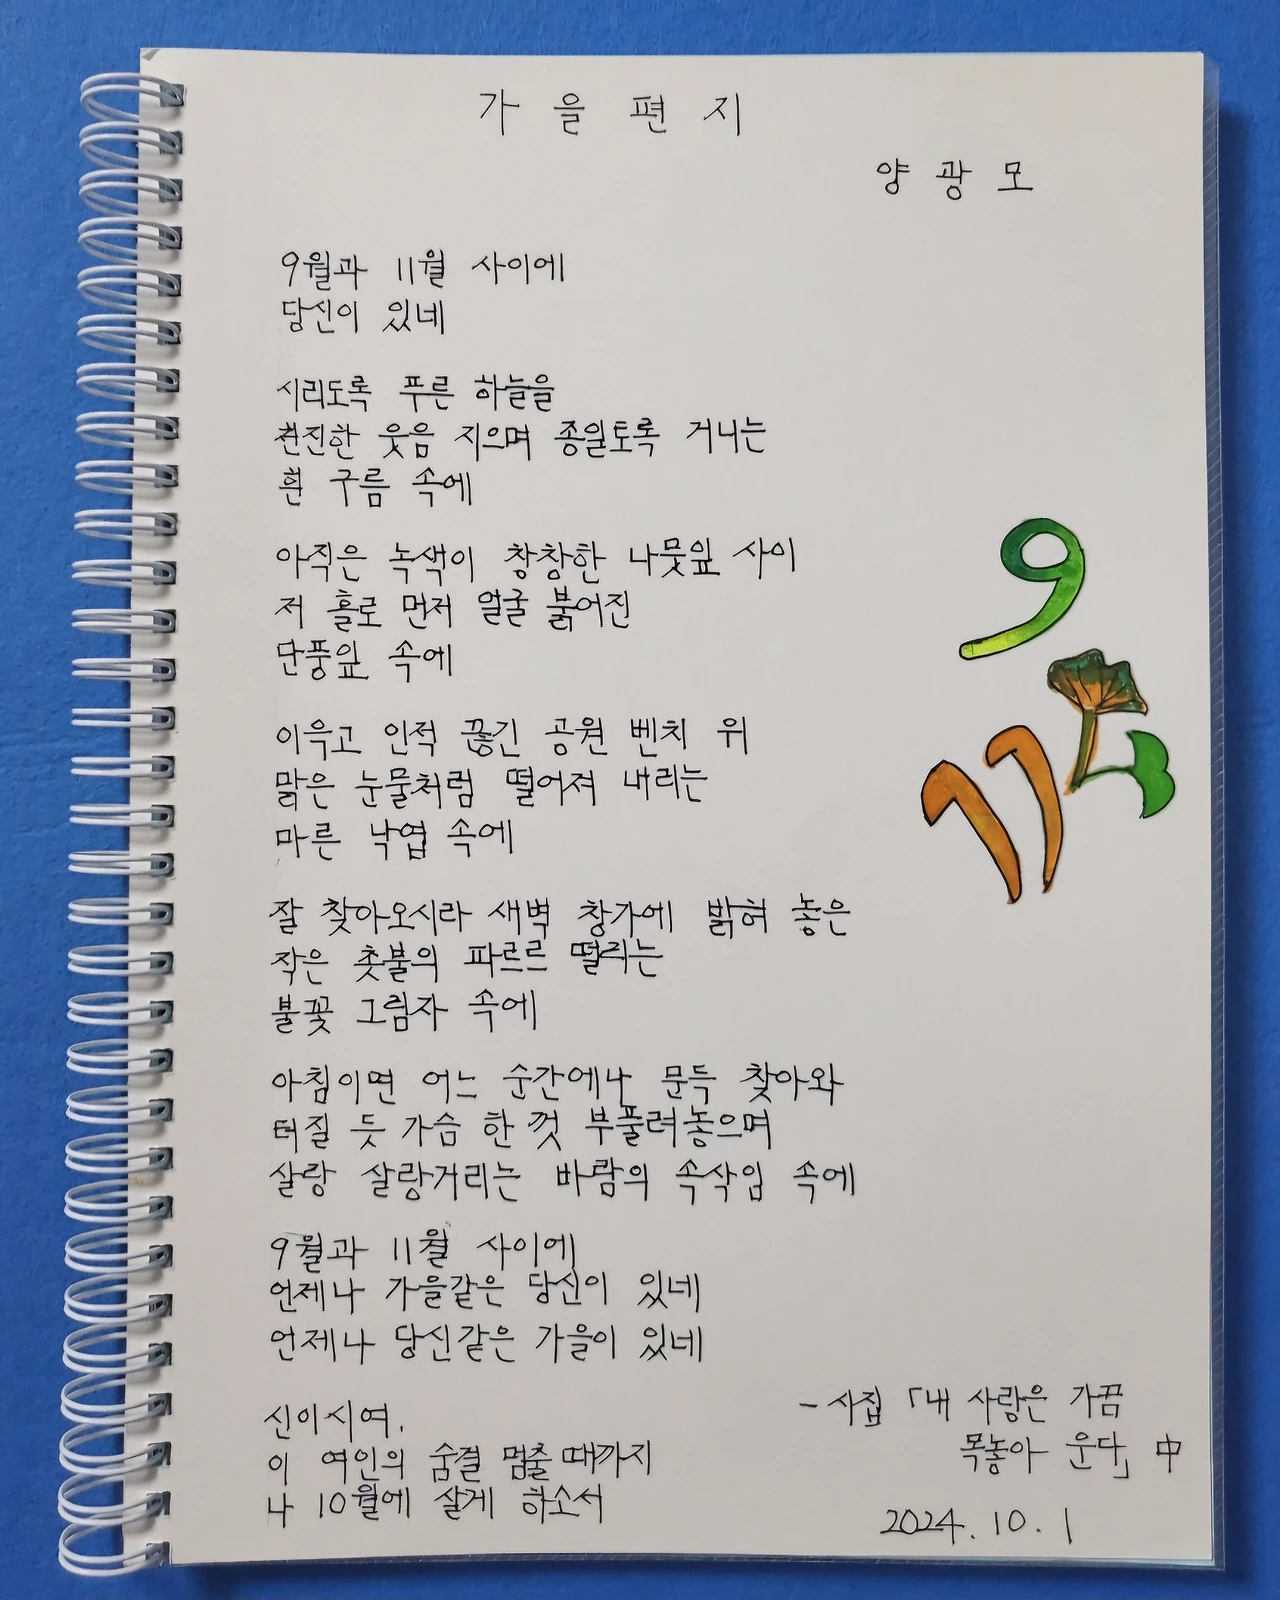 가을편지
양광모
9월과 11월 사이에
당신이 있네
시리도록 푸른 하늘을
천진한 웃음 지으며 종일토록 거니는
흰 구름 속에
아직은 녹색이 창창한 나뭇잎 사이
저 홀로 먼저 얼굴 붉어진
단풍잎 속에
이윽고 인적 끊긴 공원 벤치 위
맑은 눈물처럼 떨어져 내리는
마른 낙엽 속에
잘 찾아오시라 새벽 창가에 밝혀 놓은
작은 촛불의 파르르 떨리는
불꽃 그림자 속에
아침이면 어느 순간에나 문득 찾아와
터질 듯 가슴 한껏 부풀려놓으며
살랑 살랑거리는 바람의 속삭임 속에
9월과 11월 사이에
언제나 가을같은 당신이 있네
언제나 당신같은 가을이 있네
신이시여.
이 여인의 숨결 멈출 때까지
나 10월에 살게 하소서
- 시집 「내 사랑은 가끔
목놓아 운다」 中
2024.10.1
9
11